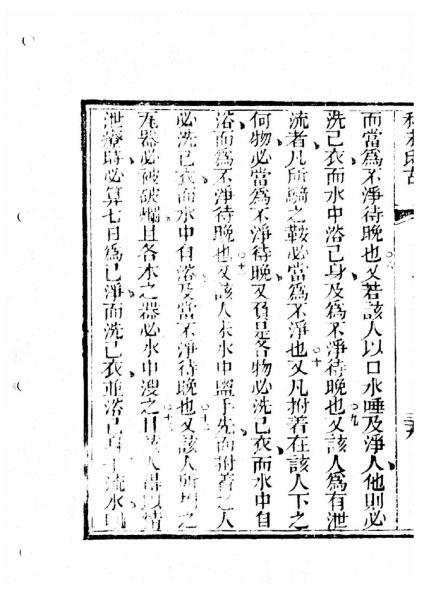 而當為不淨待晚也又若該人以口水唾及淨人他則必
洗己衣而水中浴己身及為不淨待晚也又該人為有泄
流者凡所騎之鞍必當為不淨也又凡拊著在該人下之
何物必當為不淨待晚又負是各物必洗己衣而水中自
浴而為不淨待晚也又該人未水中盥手先而拊著之人
必洗己衣而水中自浴及當不淨待晚也又該人所拊之
瓦器必被破爛且各木之器必水中溲之且該人得以清
泄 時必算七日為己淨而洗己衣並浴己身 流水